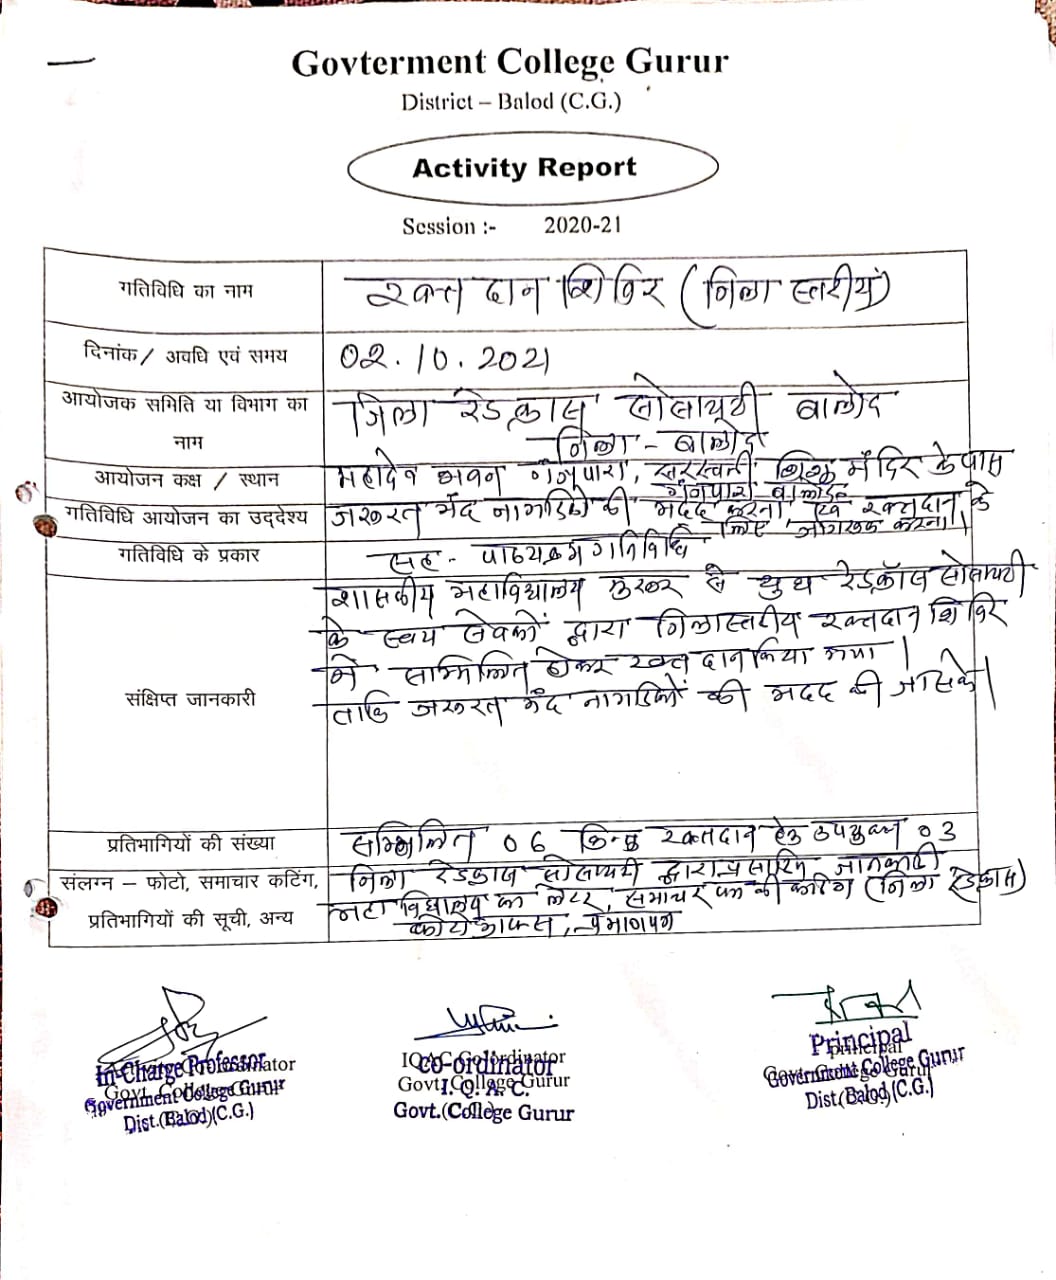 Govterment College Gurur
District – Balod (C.G.)
Activity Report
Session :- 2020-21
गतिविधि का नाम रक्त दान शिविर (जिला स्तरीय)
दिनांक / अवधि एवं समय 02.10.2021
आयोजक समिति या विभाग का नाम जिला रेडक्रास सोसायटी बालोद
जिला - बालोद
आयोजन कक्ष / स्थान महादेव भवन गंजपारा, सरस्वती शिशु मंदिर के पास
गंजपारा बालोद
गतिविधि आयोजन का उद्देश्य जरूरत मंद नागरिकों की मदद करना एवं रक्तदान के
लिए जागरूक करना।
गतिविधि के प्रकार सह - पाठ्यक्रम गतिविधि
संक्षिप्त जानकारी
शासकीय महाविद्यालय गुरूर से युथ रेडक्रॉस सोसायटी
के स्वयं सेवकों द्वारा जिलास्तरीय रक्तदान शिविर
में सम्मिलित होकर रक्त दान किया गया।
ताकि जरूरत मंद नागरिकों की मदद की जा सके।
प्रतिभागियों की संख्या सम्मिलित 06 किन्तु रक्तदान हेतु उपयुक्त 03
संलग्न – फोटो, समाचार कटिंग, जिला रेडक्रास सोसायटी द्वारा प्रसारित जानकारी
प्रतिभागियों की सूची, अन्य महाविद्यालय का लेटर, समाचार पत्र की कटिंग (जिला रेडक्रास)
फोटोग्राफ्स, प्रमाणपत्र
In-Charge Professor
Government College Gurur
Dist.(Balod)(C.G.)
IQAC Coordinator
Govt. College Gurur
Co-ordinator
I.Q.A.C.
Govt. College Gurur
Principal
Government College Gurur
Dist.(Balod)(C.G.)